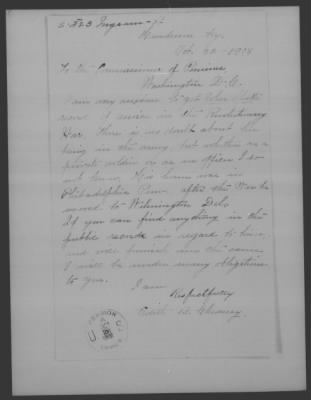 Henderson Ky.
Oct. 22 - 1904
To the Commissioner of Pensions,
Washington D.C.
I am very anxious to get
record & service in the Revolutionary
War. There is no doubt about his
being in the army but whether as a
private soldier or as an officer I do
not know. His home was in
Philadelphia Penn. after the War he
moved to Wilmington Dela.
If you can find anything in the
public records in regard to him,
and will furnish me the same
I will be under many obligations
to you.
I am
Respectfully
Edith